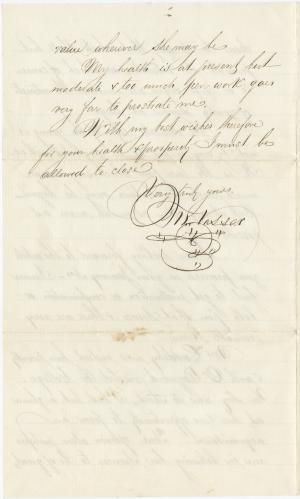 value wherever she may be
My health is at present but
moderate & too much pen work goes
very far to prostrate me.
With my best wishes therefore
for your health & prosperity I must be
allowed to close
Very truly yours,
M. Vassar